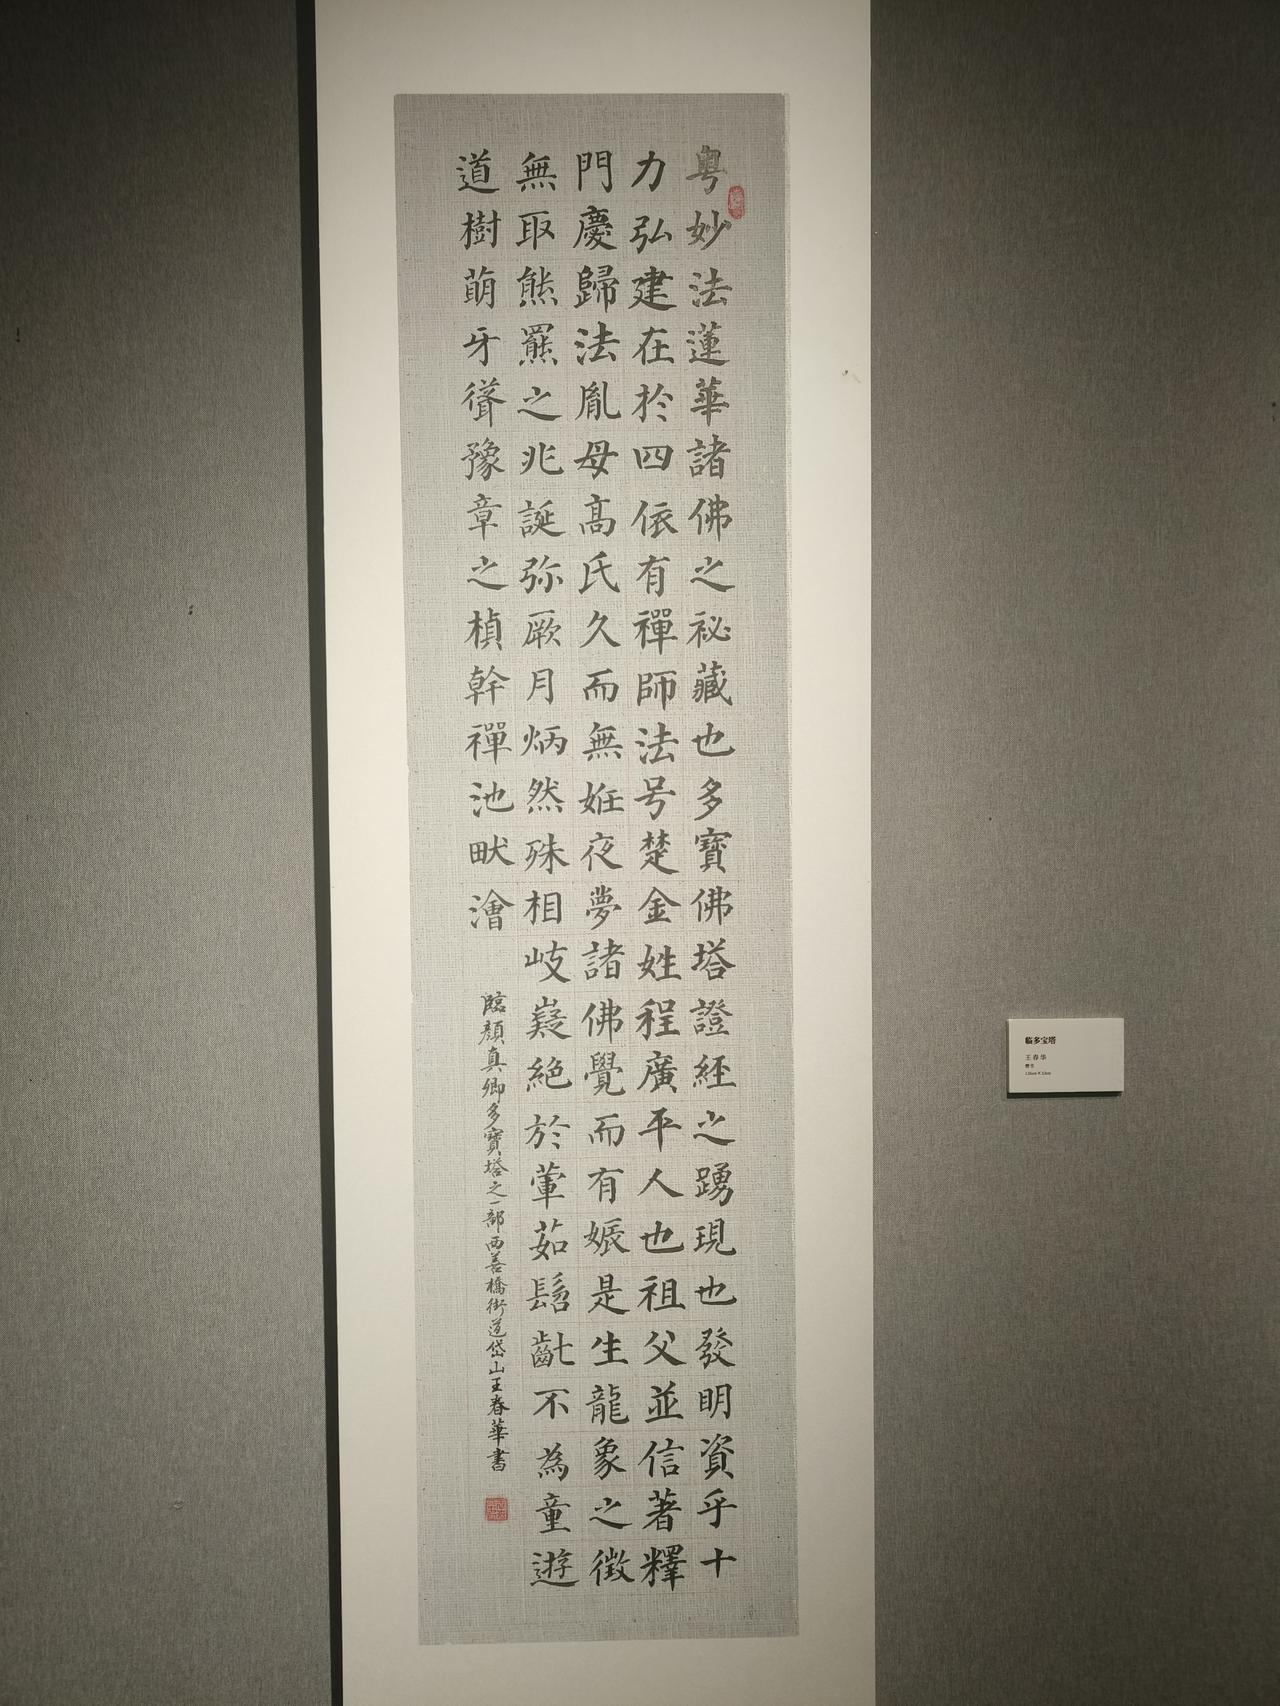 粤妙法蓮華諸佛之祕藏也多寶佛塔證經之踴現也發明資乎十
力弘建在於四依有禪師法号楚金姓程廣平人也祖父並信著釋
門慶歸法胤母高氏久而無妊夜夢諸佛覺而有娠是生龍象之徵
無取熊羆之兆誕弥厥月炳然殊相岐嶷絕於葷茹髫齔不為童遊
道樹萌牙聳豫章之楨幹禪池畎澮
臨顏真卿多寶塔之一部西善橋街道岱山王春華書
临多宝塔
王春华
楷书